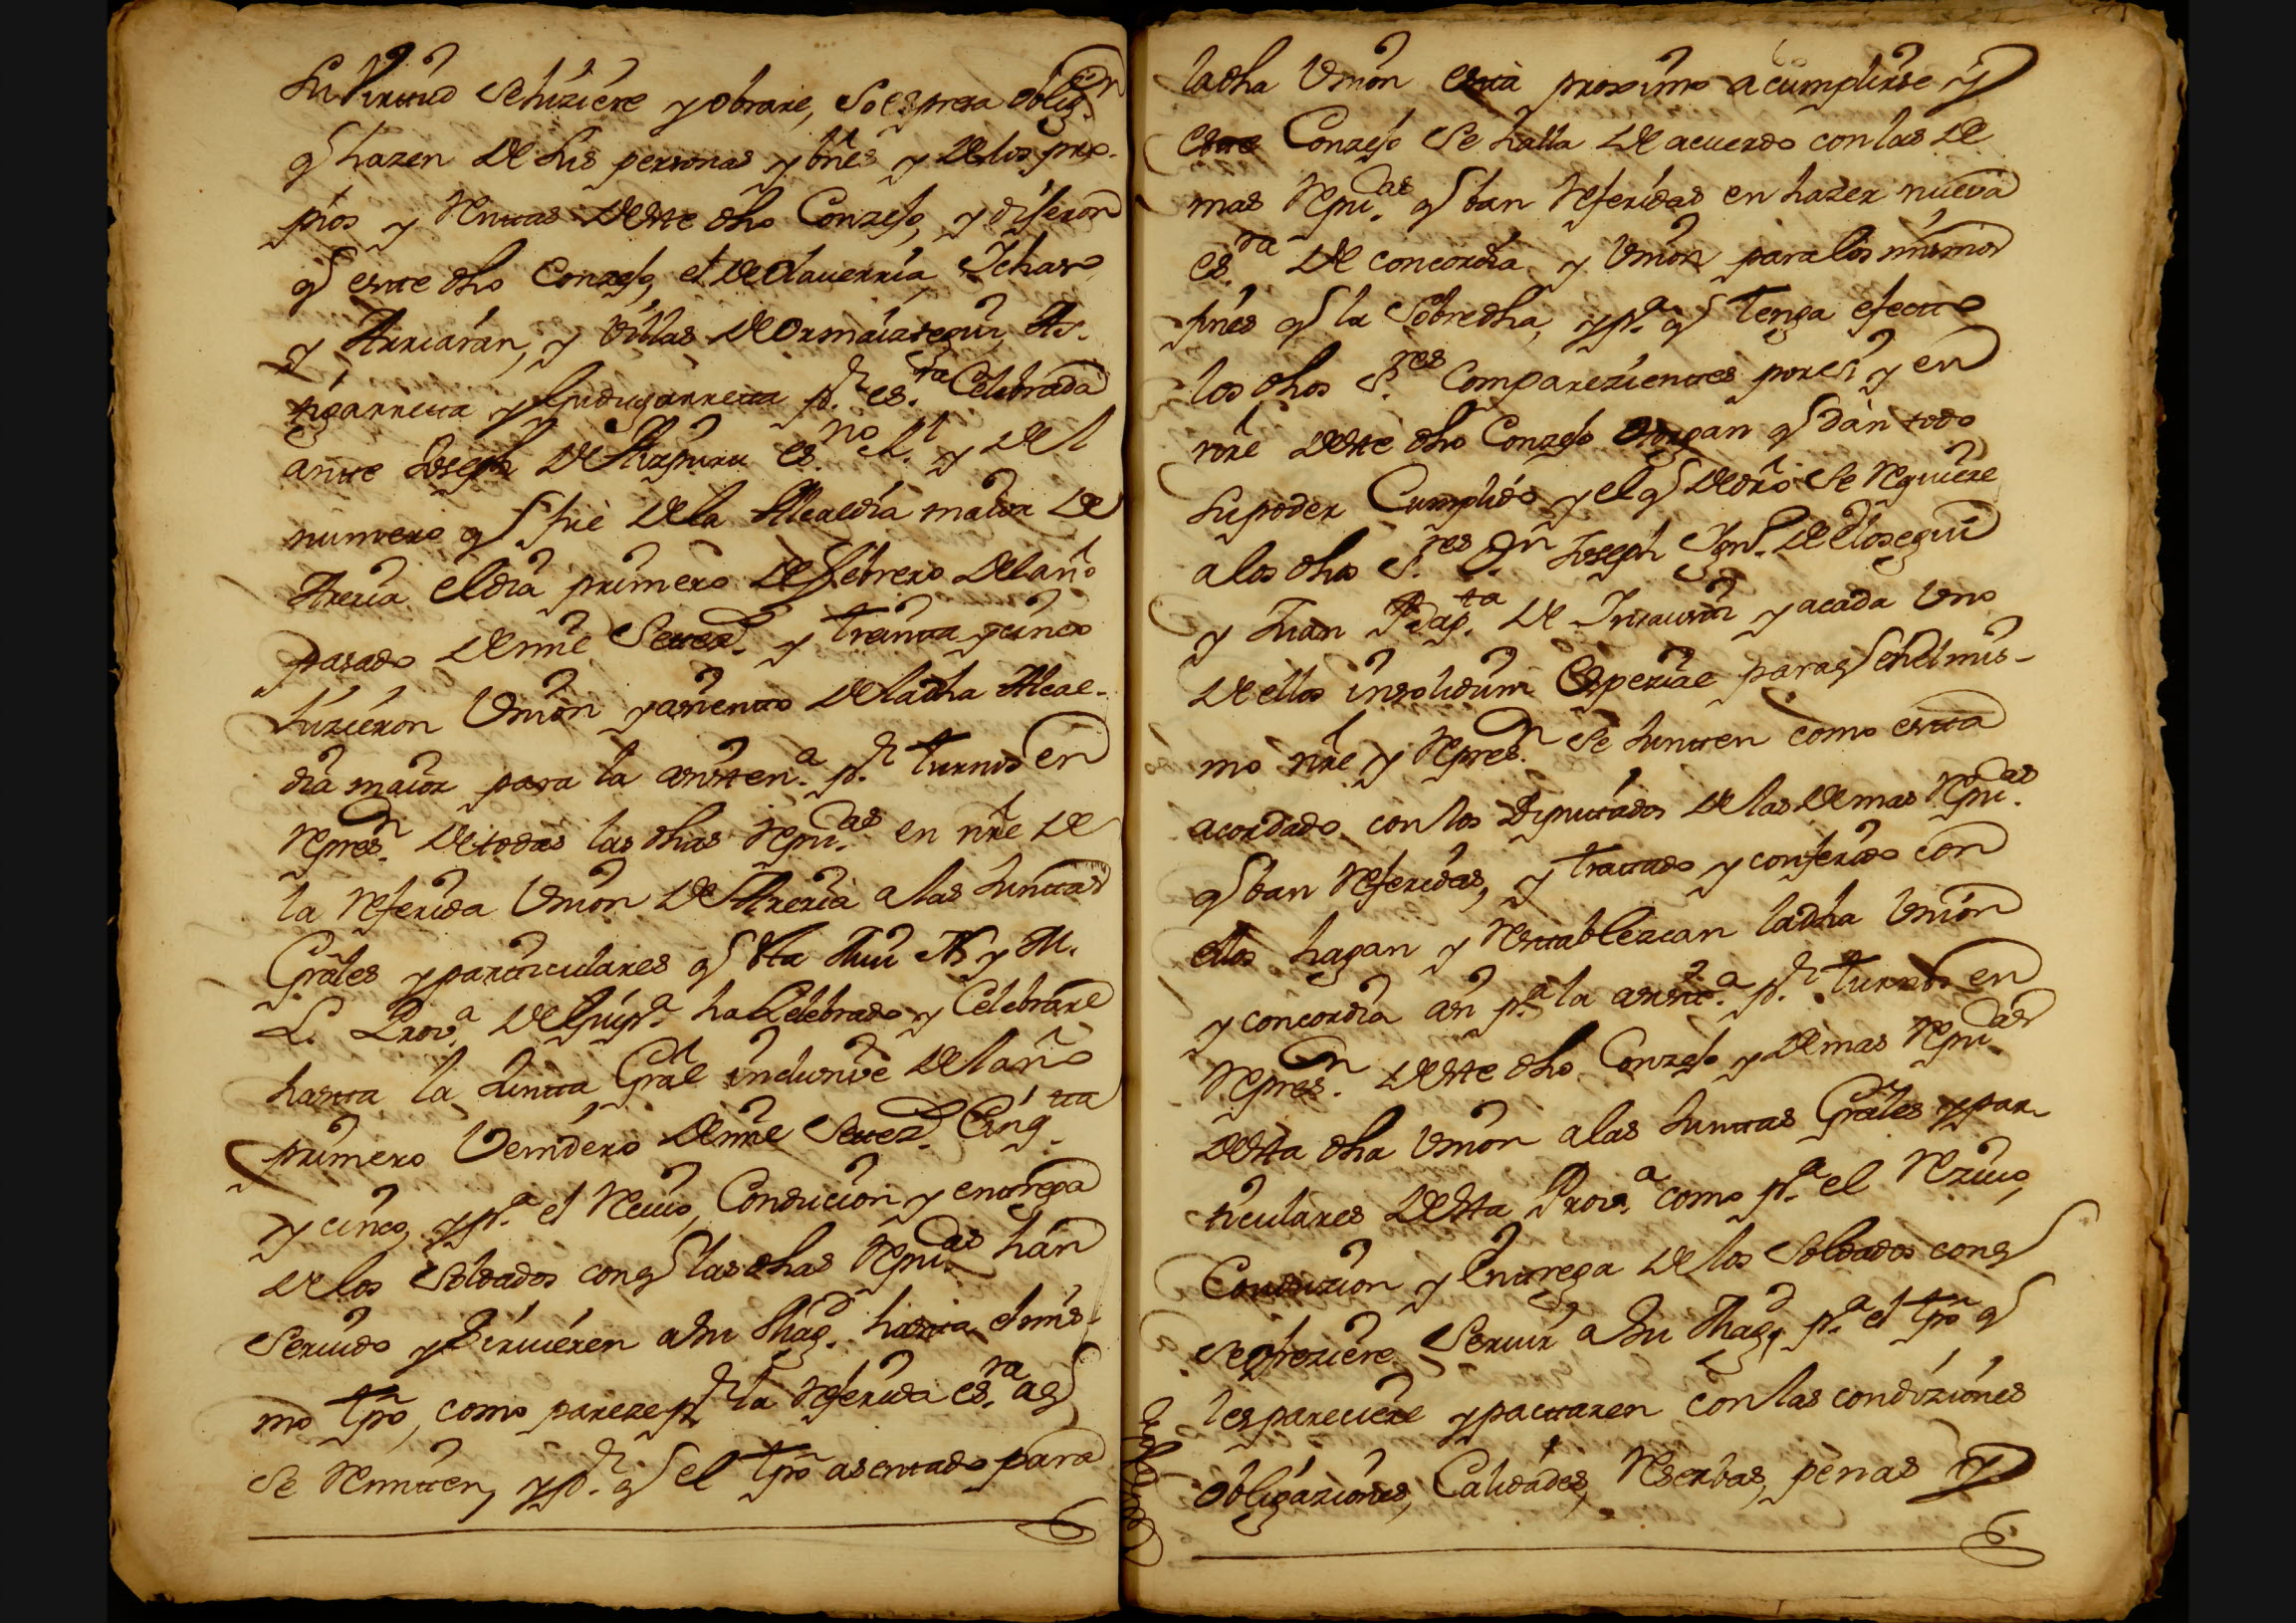 Su Virtud Sehiziere y obrare, So espresa oblig.on
q hazen de Sus personas y bnes y delos pro-
pios y Rentas deste dho Conzejo, y dijeron
q este dho Conzejo, el de olauerria, Ichaso,
y Arriaran, y Villas de ormaiztegui, As-
tigarreta y Gudugarreta p.r es.ra Celebrada
ante Joseph de Aizpuru es.no R.l y del
numero q fue dela Alcaldia maior de
Areria eldia primero de febrero delaño
pasado demil Setez.s y treinta y cinco
hizieron Union y asiento deladha Alcal-
dia maior para la asisten.a p.r turnos en
repres.n detodas las dhas Repu.as en nre de
la referida Union de Areria a las Juntas
Grales y particulares q esta Mui N. y M.
L. Prov.a de Guip.a ha Celebrado y Celebrare
hasta la Junta Gral inclusive delaño
primero Venidero demil Setez.s Cinq.ta
y cinco, y p.a el Reciuo, Conducion y entrega
delos Soldados conq las dhas Repu.as hán
Seruido y Siruieren asu Mag.d hasta elmis-
mo tpo, como pareze p.r la referida es.ra aq
Se Remiten, y p.r q el tpo asentado para
ladha Union está proximo acumplirse y
este Conzejo Se halla de acuerdo conlas de
mas Repu.as q ban referidas en hazer nueva
es.ra de concordia y Union paralos mismos
fines q la Sobredha, y p.a q tenga efecto
los dhos S.res Comparezientes porsi y en
nre deste dho Conzejo otorgan q dán todo
Supoder Cumplido y el q dedro Se requiere
alos dhos S.res D.n Joseph Ign.o de olosegui
y Juan Bap.ta de Insausti y acada Uno
deellos insolidum Espezial paraq enelmis-
mo nre y repres.n Se Junten como esta
acordado con los Diputados delasdemas Repu.as
q ban referidas, y tratado y conferido con
ellos hagan y restablezcan ladha Union
y concordia asi p.a la asiste.a p.r turnos en
Repres.n deste dho Conzejo y demas Repu.as
desta dha Union alas Juntas Grales y par-
ticulares desta Prov.a como p.a el Reziuo,
Conduzion y Entrega delos Soldados conq
seofreziere Seruir a Su Mag.d p.a el tpo q
lespareciere y pactaren conlas condiziones
obligaziones, Calidades, reserbas, penas y